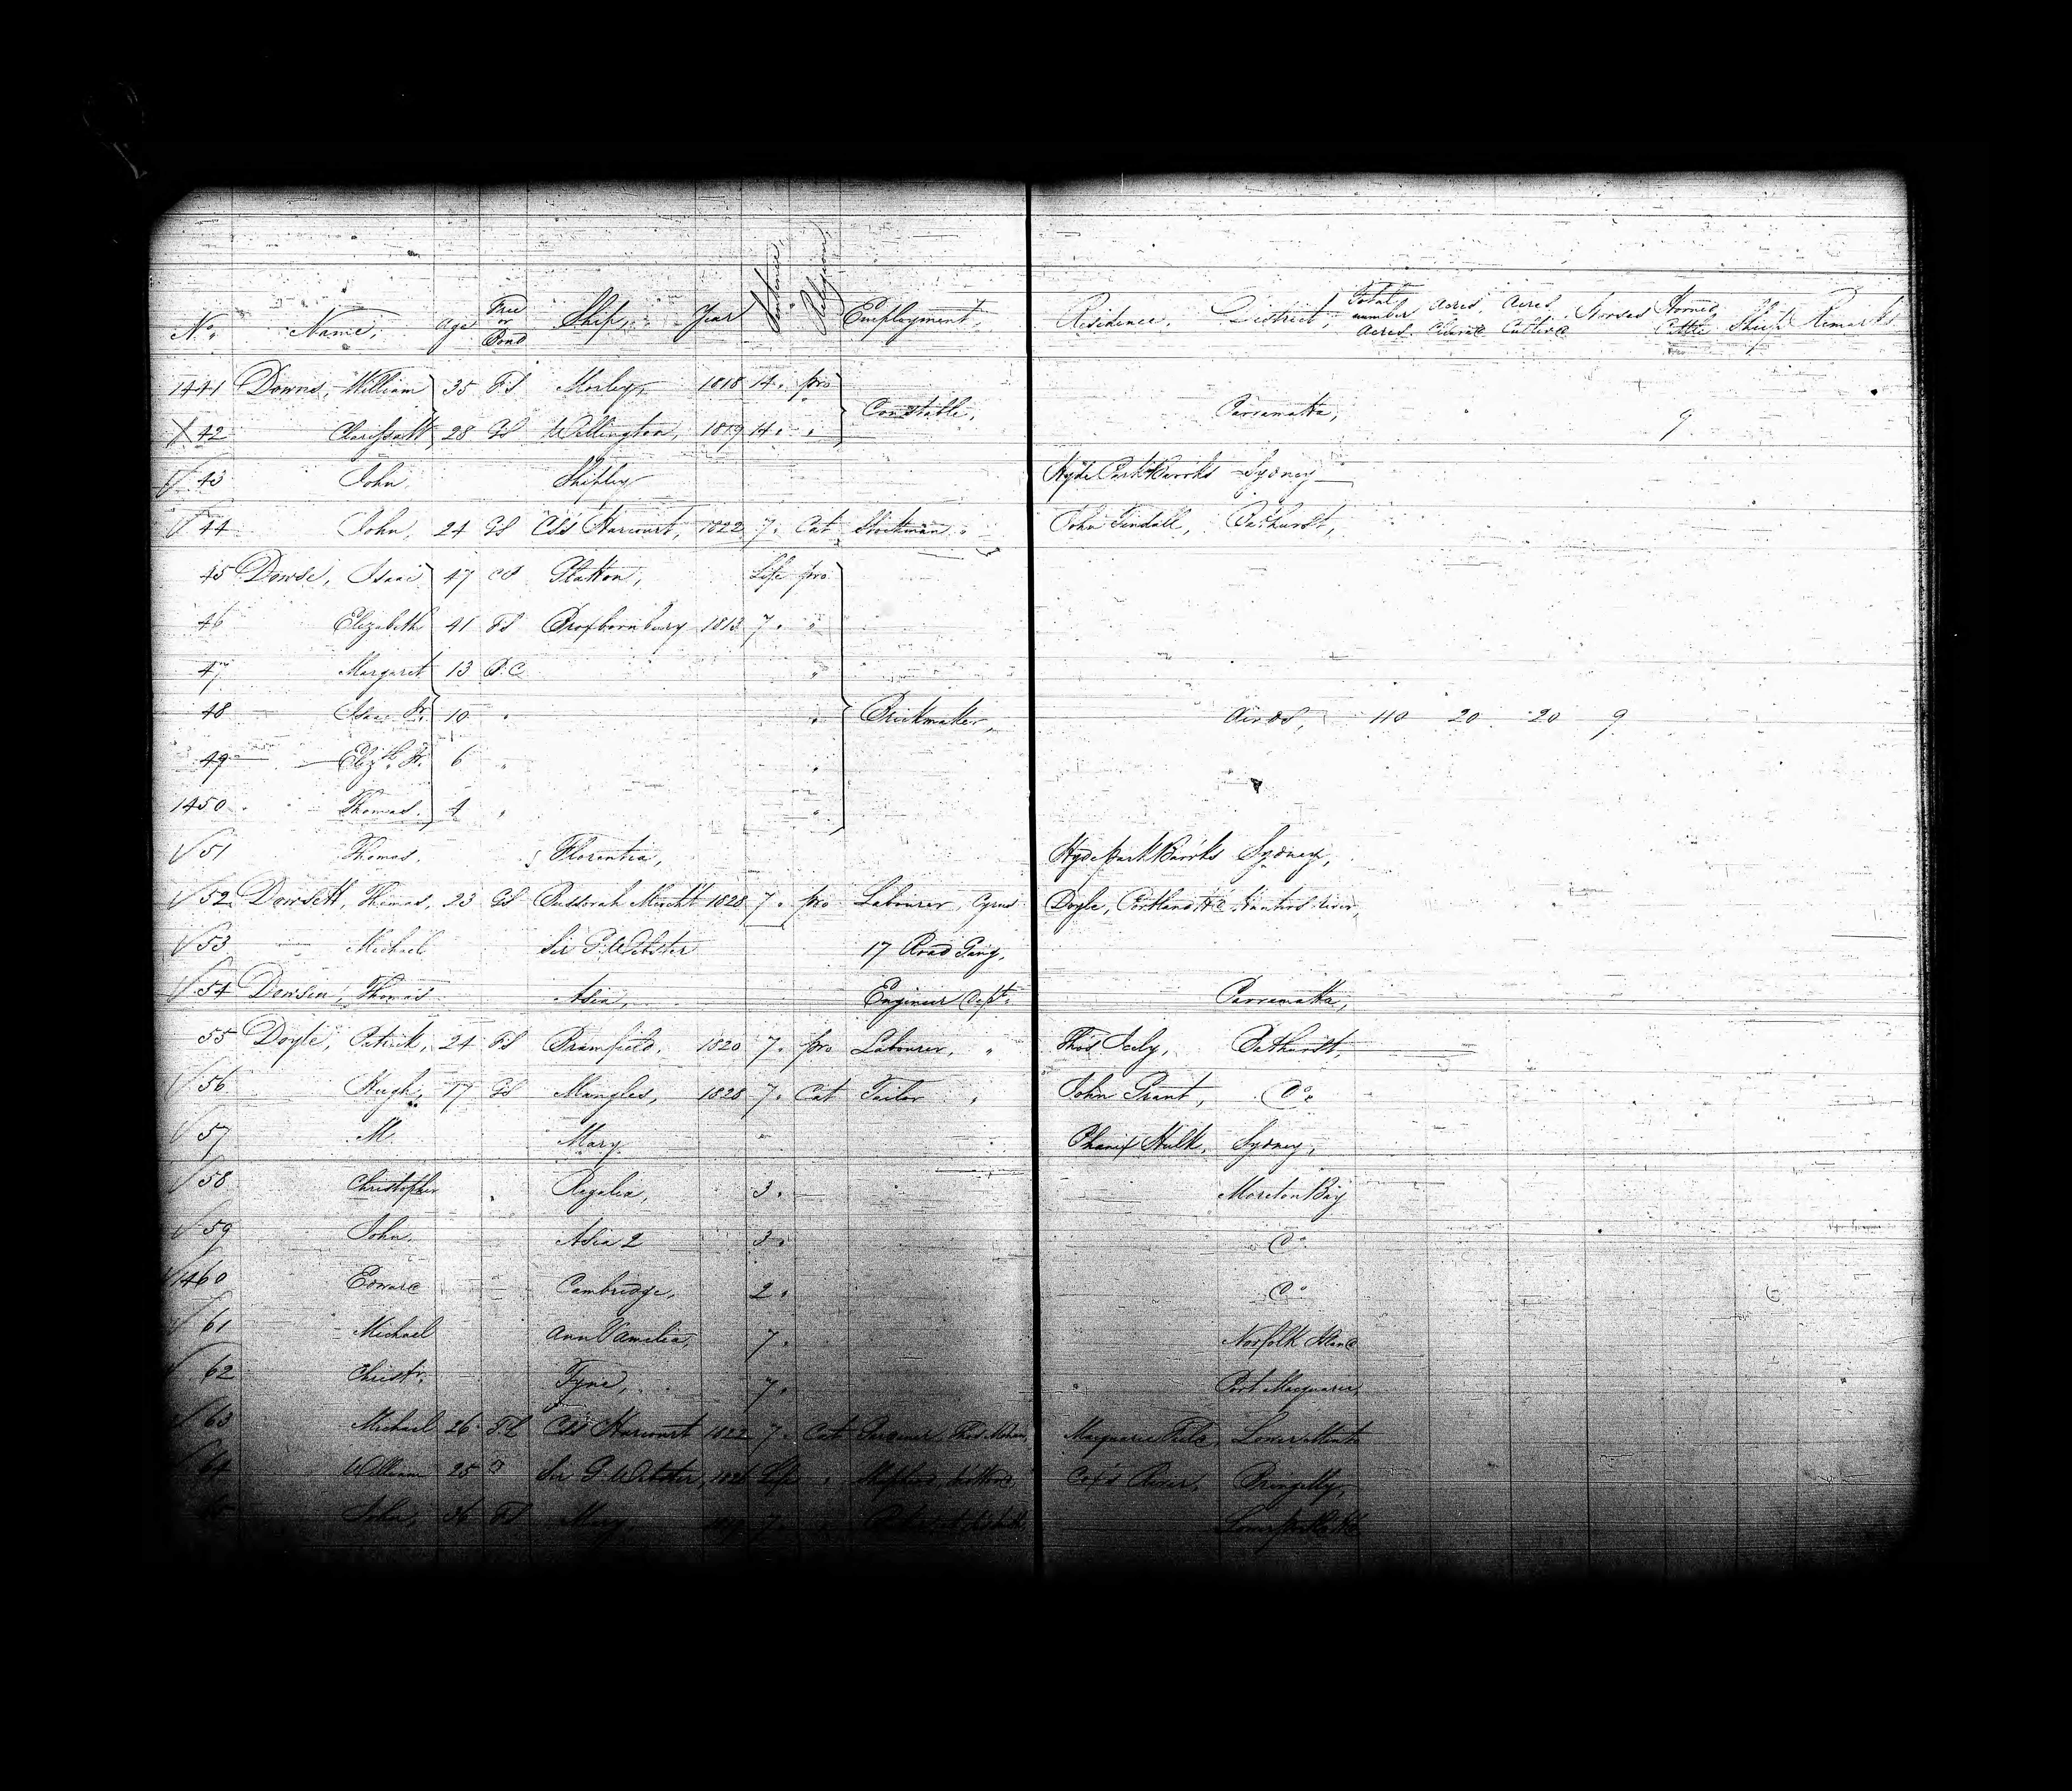 No. Name, Age Free or Bond Ship, Year Sentence Religion Employment, Residence, District, Total number Acres Acres Cleared Acres Cultived Horses Horned Cattle Sheep Remarks
1441 Downs, William 35 FS Morley, 1818 14. pro Constable, Parramatta, 9
X 42 28 GS Wellington, 1819 14. "
√ 43 John Shipley Hyde Park Barrks Sydney
√ 44 John, 24 GS Css Harcourt, 1822 7. Cat Stockman " John Tindall, Bathurst,
45 Dowse, Isaac 47 CS Glatton, Life pro
46 Elizabeth 41 FS Broxbornbury 1813 7. "
47 Margaret 13 B.C "
48 Isaac Jr. 10 " " Brickmaker, Airds, 110 20 20 9
49 Elizth. Jr. 6 " "
1450 Thomas. 4 " "
√ 51 Thomas. Florentia, Hyde park Barrks Sydney,
√ 52 Dowsett, Thomas, 23 GS Bussorah Mercht 1828 7. pro Labourer, Cyrus Doyle, Portland Hd. Hunters River,
√ 53 Michael Sir G. Webster 17 Road Gang,
√ 54 Thomas Asia, Engineer Dept. Parramatta,
55 Doyle, Patrick, 24 FS 1820 7. pro Labourer, " Thos Icely, Bathurst,
√ 56 Hugh, 17 GS Mangles, 1828 7. Cat Tailor " John Grant, Do.
√ 57 M. Mary Phœnix Hulk, Sydney,
√ 58 Christopher Regalia, 3. Moreton Bay
√ 59 John. Asia 2 3. Do
√ 1460 Edward Cambridge, 2. Do
√ 61 Michael Ann & Amelia, 7. Norfolk Island
√ 62 Christr. Tyne, 7. Port Macquarie,
√ 63 Michael 26 Css Harcourt 1822 7. Cat Macquarie Field,
64 William 25 Sir G. Webster, 1826 Life " Cox's River, Bringelly,
65 John, 36 FS Mary, 7.